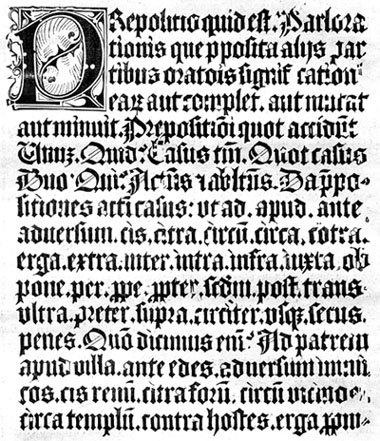 PRepositio quid est. Pars ora
tionis que pposita alijs par
tibus orationis significationē
earū aut complet. aut mutat
aut minuit. Prepositiōi quot accidūt
Unū. Quid: Casus tm̄. Quot casus
Duo Qui: Actūs ⁊ abltūs. Da p̄po-
sitiones acti casus: vt ad. apud. ante
aduersum. cis. citra. circū. circa. cōtra.
erga. extra. inter. intra. infra. iuxta. ob
pone. per. ꝓpe. ꝓpter. scdm̄. post. trans
vltra. preter. supra. circiter. vsqꝫ. secus.
penes. Quō dicimus em̄: Ad patrem
apud villa. ante edes. aduersum inimi
cos. cis renū. citra forū. circū vicinos
circa templū. contra hostes. erga ꝓpin-